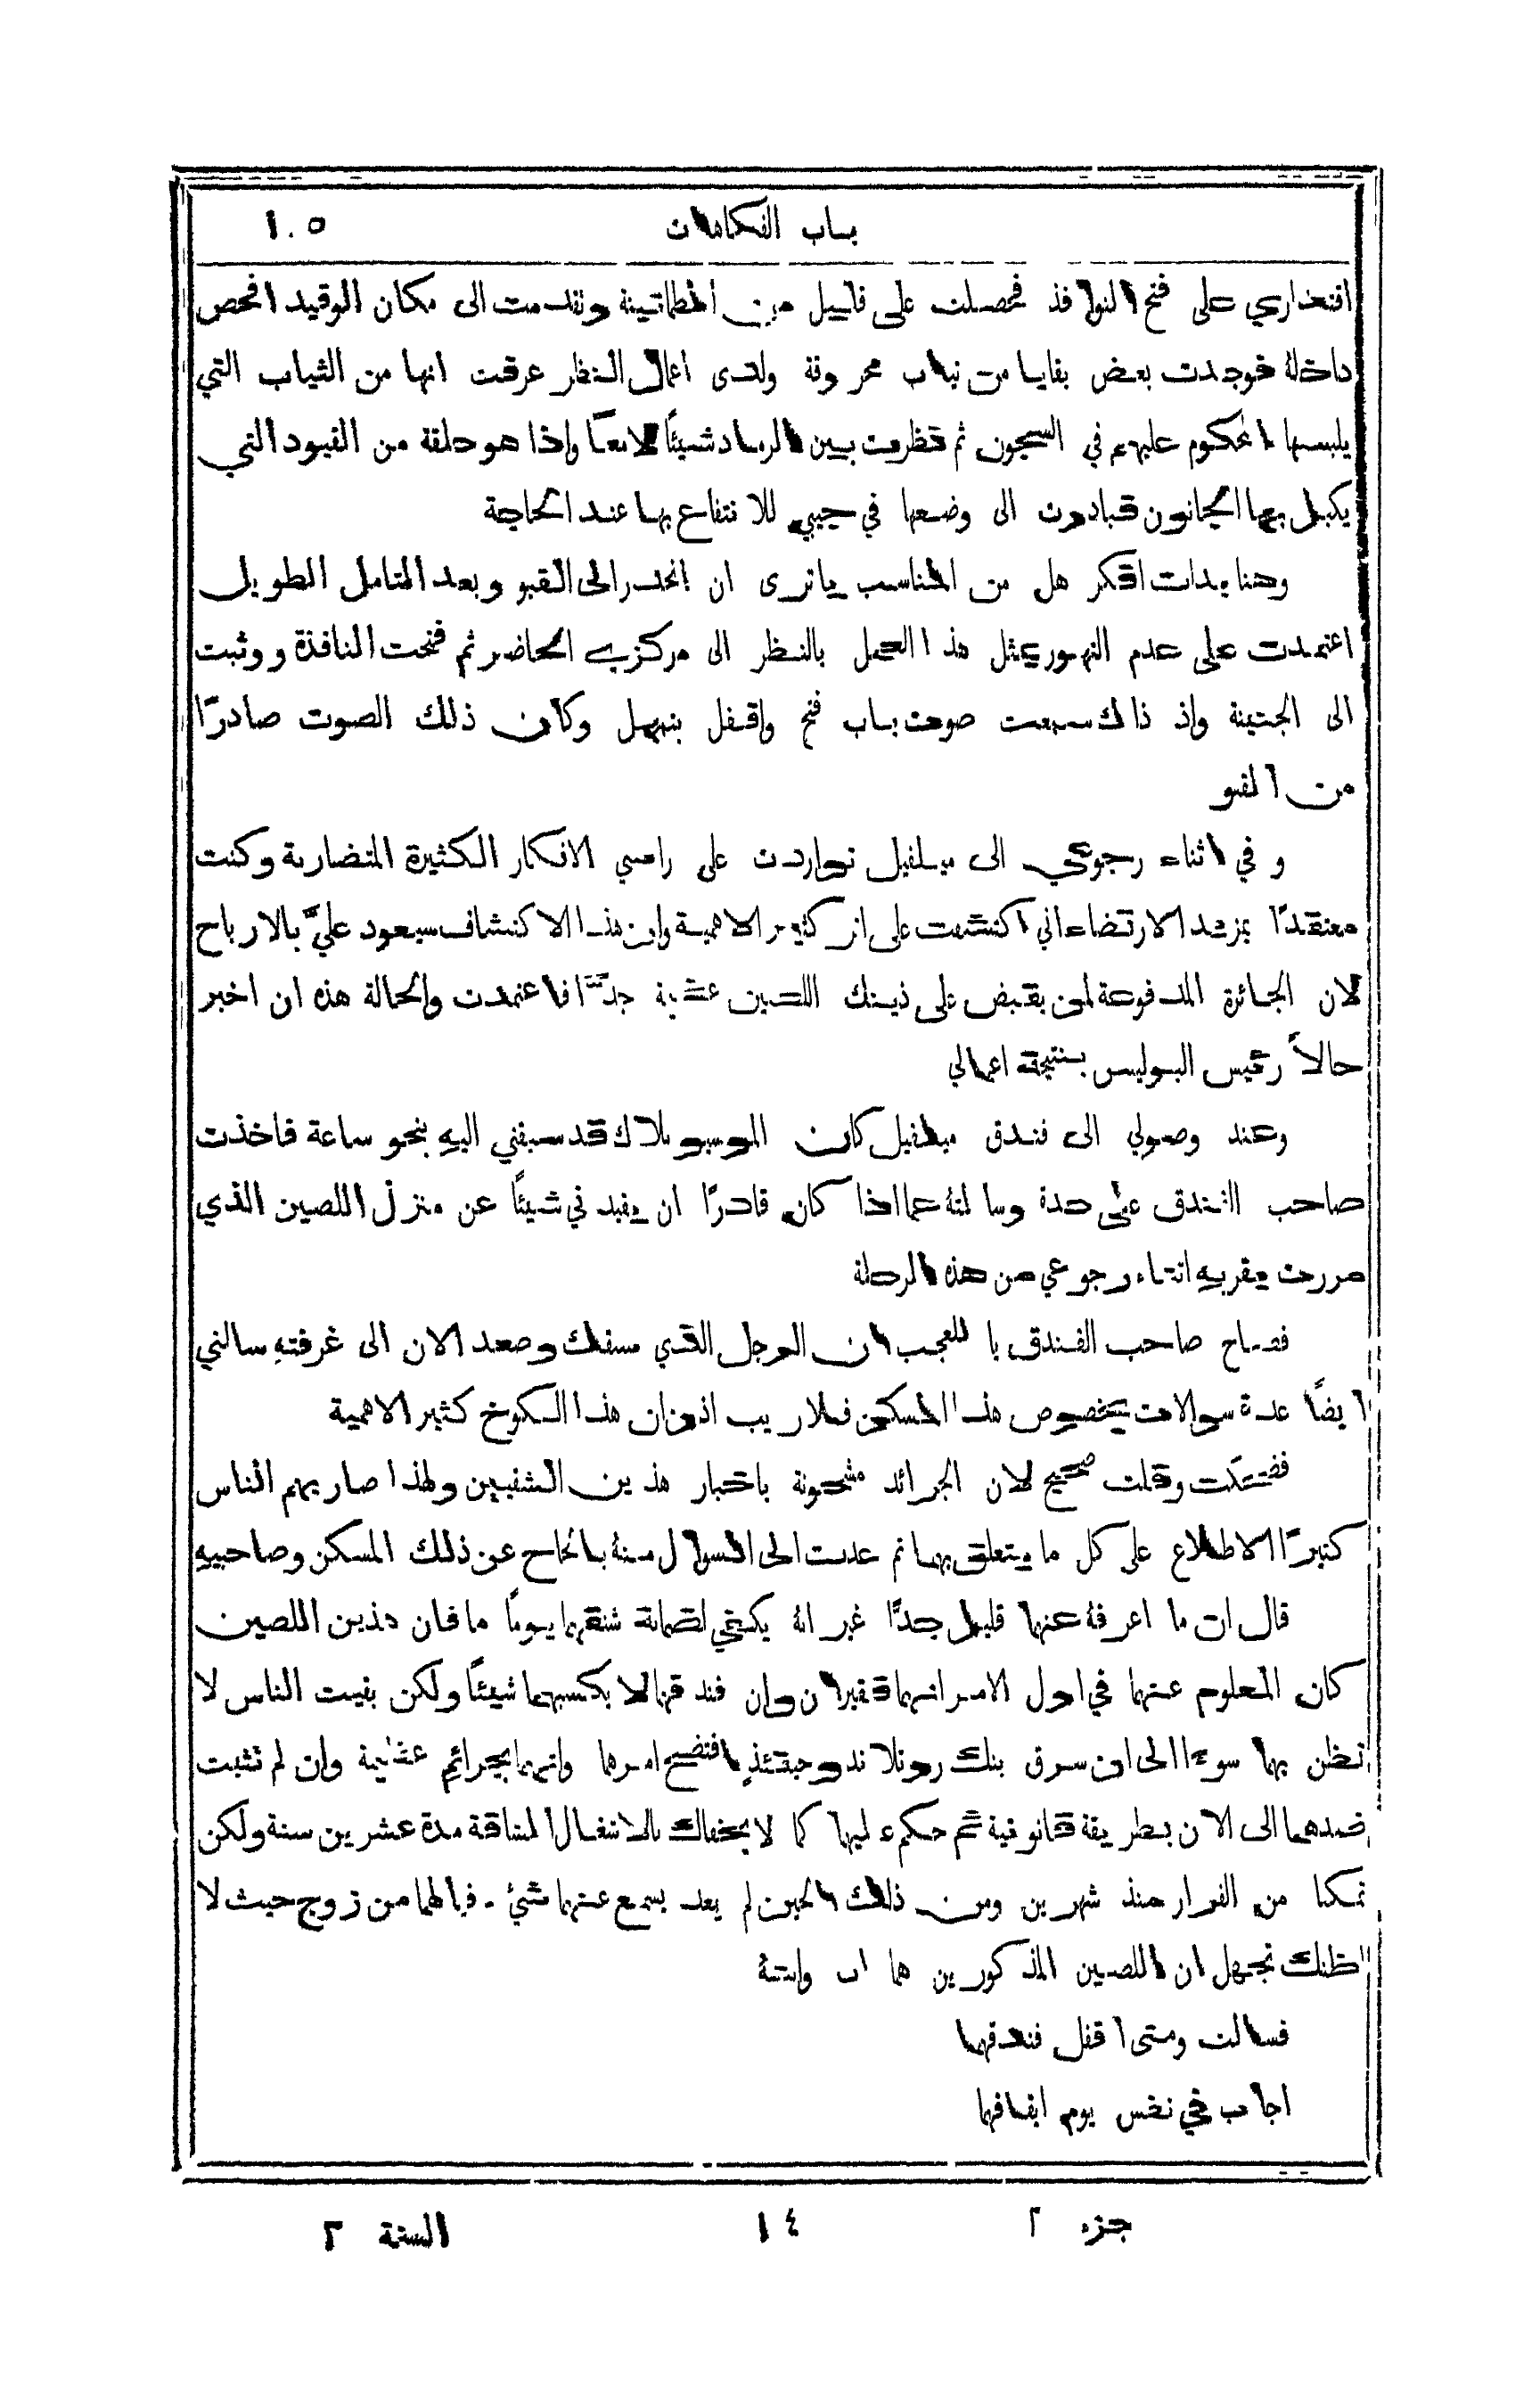 باب الفكاهات ١٠٥
اقتداري على فتح النوافذ فحصلت على قليل من الطمانينة وتقدمت الى مكان الوقيد افحص
داخلهُ فوجدت بعض بقايا من ثياب محروقة ولدى اعمال النظر عرفت انها من الثياب التي
يلبسها المحكوم عليهم في السجون ثم نظرت بين الرماد شيئًا لامعًا واذا هو حلقة من القيود التي
يكبل بها الجانون فبادرت الى وضعها في جيبي للانتفاع بها عند الحاجة
وهنا بدات افكر هل من المناسب يا ترى ان انحدر الى القبو وبعد التامل الطويل
اعتمدت على عدم التهور بمثل هذا العمل بالنظر الى مركزي الحاضر ثم فتحت النافذة ووثبت
الى الجنينة واذ ذاك سمعت صوت باب فتح واقفل بتمهل وكان ذلك الصوت صادرًا
من القبو
وفي اثناء رجوعي الى ميلفيل تواردت على راسي الافكار الكثيرة المتضاربة وكنت
معتقدًا بمزيد الارتضاء اني اكتشفت على اثر كثير الاهمية وان هذا الاكتشاف سيعود عليَّ بالارباح
لان الجائزة المدفوعة لمن يقبض على ذينك اللصين عظيمة جدًّا فاعتمدت والحالة هذه ان اخبر
حالاً رئيس البوليس بنتيجة اعمالي
وعند وصولي الى فندق ميلفيل كان الموسيو بلاك قد سبقني اليهِ بنحو ساعة فاخذت
صاحب الفندق على حدة وسالتهُ عما اذا كان قادرًا ان يفيدني شيئًا عن منزل اللصين الذي
مررت بقربهِ اثناء رجوعي من هذه الرحلة
فصاح صاحب الفندق يا للعجب ان الرجل الذي سبقك وصعد الان الى غرفتهِ سالني
ايضًا عدة سوالات بخصوص هذا المسكن فلا ريب اذن ان هذا الكوخ كثير الاهمية
فضحكت وقلت صحيح لان الجرائد مشحونة باخبار هذين الشقيين ولهذا صار يهم الناس
كثيرًا الاطلاع على كل ما يتعلق بهما ثم عدت الى السوال منهُ بالحاح عن ذلك المسكن وصاحبيهِ
قال ان ما اعرفهُ عنهما قليل جدًّا غير انهُ يكفي لضمانة شنقهما يومًا ما فان هذين اللصين
كان المعلوم عنهما في اول الامر انهما فقيران وان فندقهما لا يكسبهما شيئًا ولكن بقيت الناس لا
تظن بهما سوءا الى ان سرق بنك روتلاند وحينئذٍ افتضح امرهما واتهما بجرائم عظيمة وان لم تثبت
ضدهما الى الان بطريقة قانونية ثم حكم عليهما كما لا يخفاك بالاشغال الشاقة مدة عشرين سنة ولكن
تمكنا من الفرار منذ شهرين ومن ذلك الحين لم يعد يسمع عنهما شيء . فيا لهما من زوج حيث لا
اظنك تجهل ان اللصين المذكورين هما اب وابنهُ
فسالت ومتى اقفل فندقهما
اجاب في نفس يوم ايقافهما
جزء ٢ ١٤ السنة ٢